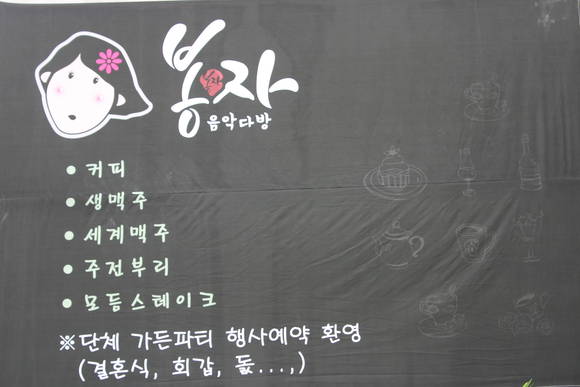 봉자
봉자
음악다방
• 커피
• 생맥주
• 세계맥주
• 주전부리
• 모듬스테이크
※단체 가든파티 행사예약 환영
(결혼식, 회갑, 돐...,)